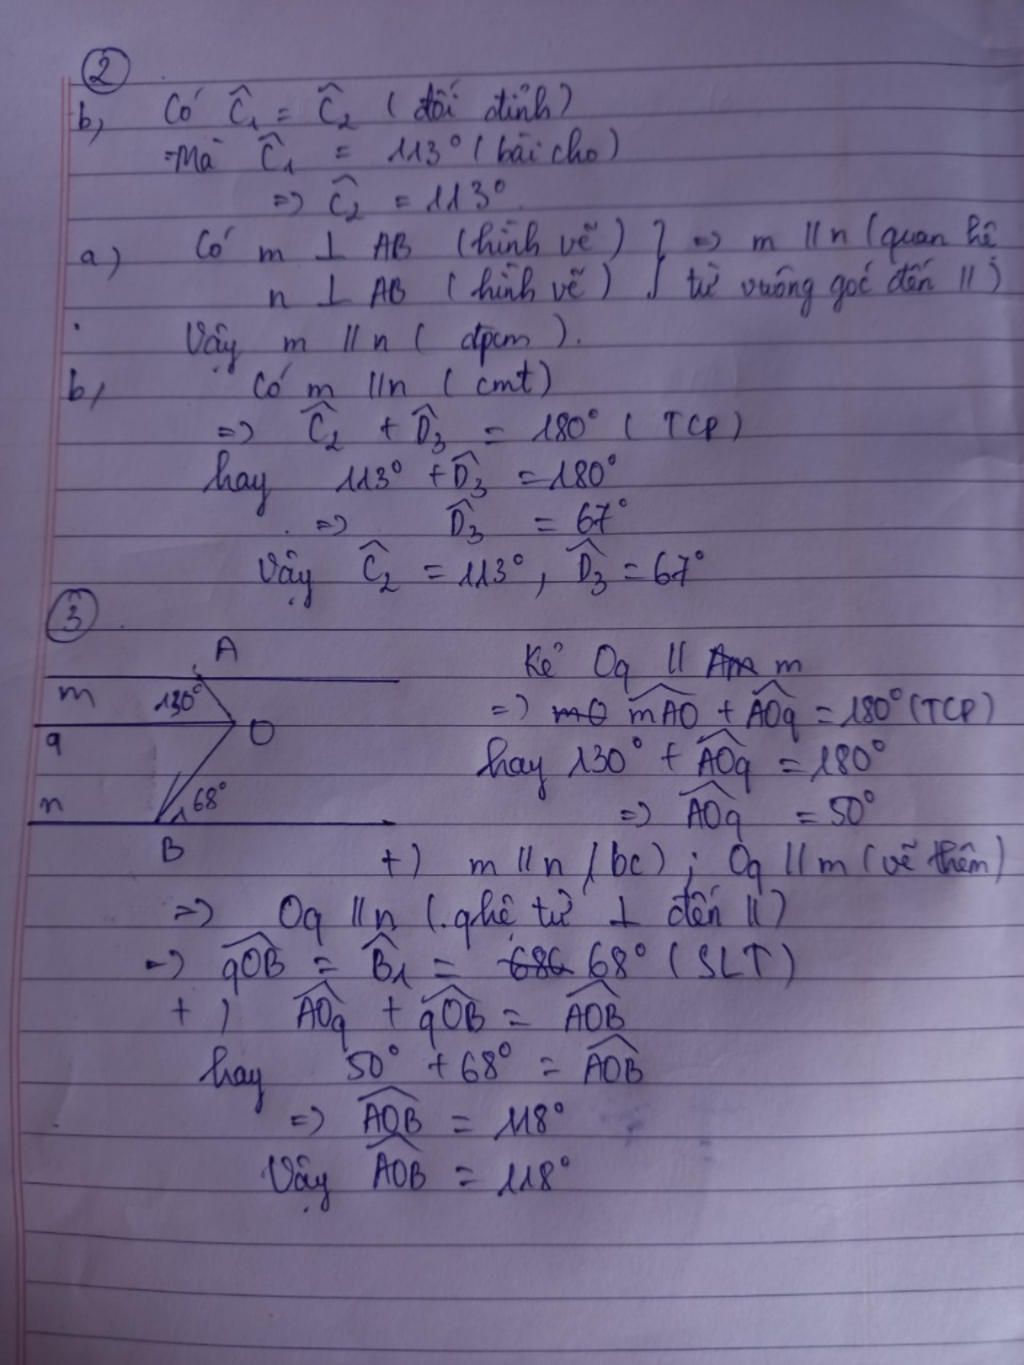 ②
b, Có Ĉ₁ = Ĉ₂ (đối đỉnh)
Mà Ĉ₁ = 113° (bài cho)
=> Ĉ₂ = 113°.
a) Có m ⊥ AB (hình vẽ) } => m // n (quan hệ
n ⊥ AB (hình vẽ) } từ vuông góc đến //)
Vậy m // n ( đpcm ).
b, Có m // n (cmt)
=> Ĉ₂ + D̂₃ = 180° ( TCP)
hay 113° + D̂₃ = 180°
=> D̂₃ = 67°
Vậy Ĉ₂ = 113°, D̂₃ = 67°
③
A
m 130°
q O
n 68°
1
B
Kẻ Oq // m
=> mAO + AOq = 180° (TCP)
hay 130° + AOq = 180°
=> AOq = 50°
+) m // n (bc) ; Oq // m (vẽ thêm)
=> Oq // n (.qhệ từ ⊥ đến //)
=> qOB = B̂₁ = 68° (SLT)
+) AOq + qOB = AOB
hay 50° + 68° = AOB
=> AOB = 118°
Vậy AOB = 118°